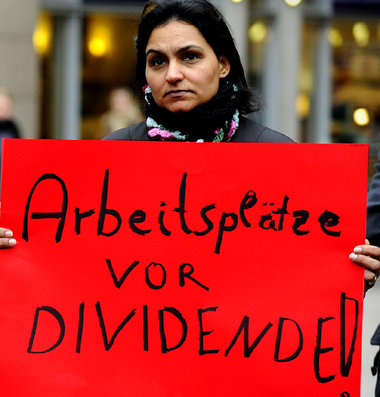 Arbeitsplätze
VOR
DIVIDENDE!